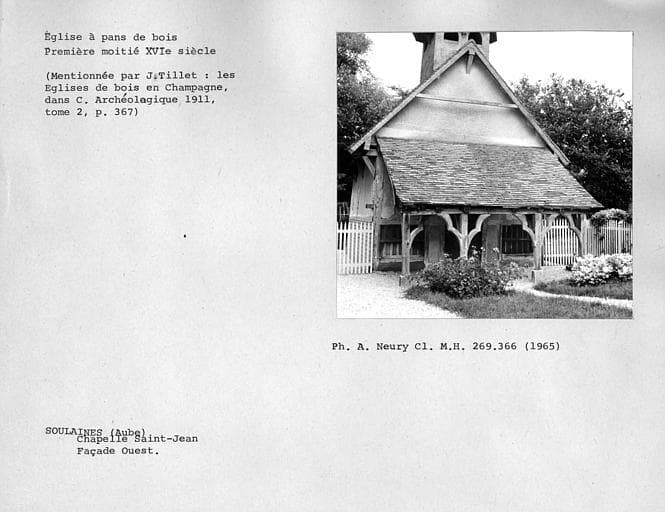 Église à pans de bois
Première moitié XVIe siècle
(Mentionnée par J.Tillet : les
Eglises de bois en Champagne,
dans C. Archéologique 1911,
tome 2, p. 367)
Ph. A. Neury Cl. M.H. 269.366 (1965)
SOULAINES (Aube)
Chapelle Saint-Jean
Façade Ouest.